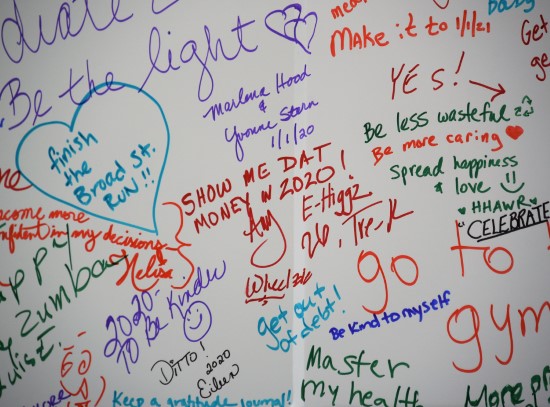 Be the light
Marlena Hood
&
Yvonne Stern
1/1/20
Make it to 1/1/21
Get
YES!
Be less wasteful
Be more caring
Spread happiness
& love
HHAWR
CELEBRATE
finish
the
Broad St.
RUN!!
become more
in my decisions
Nelisa
SHOW ME DAT
MONEY IN 2020!
E-Higgz
26, Tre-K
go to
gym
Zumba
2020-
TO Be Kinder
DITTO!
2020
Eileen
get out
of debt!
Be Kind to myself
Master
my health
More
Keep a gratitude journal!